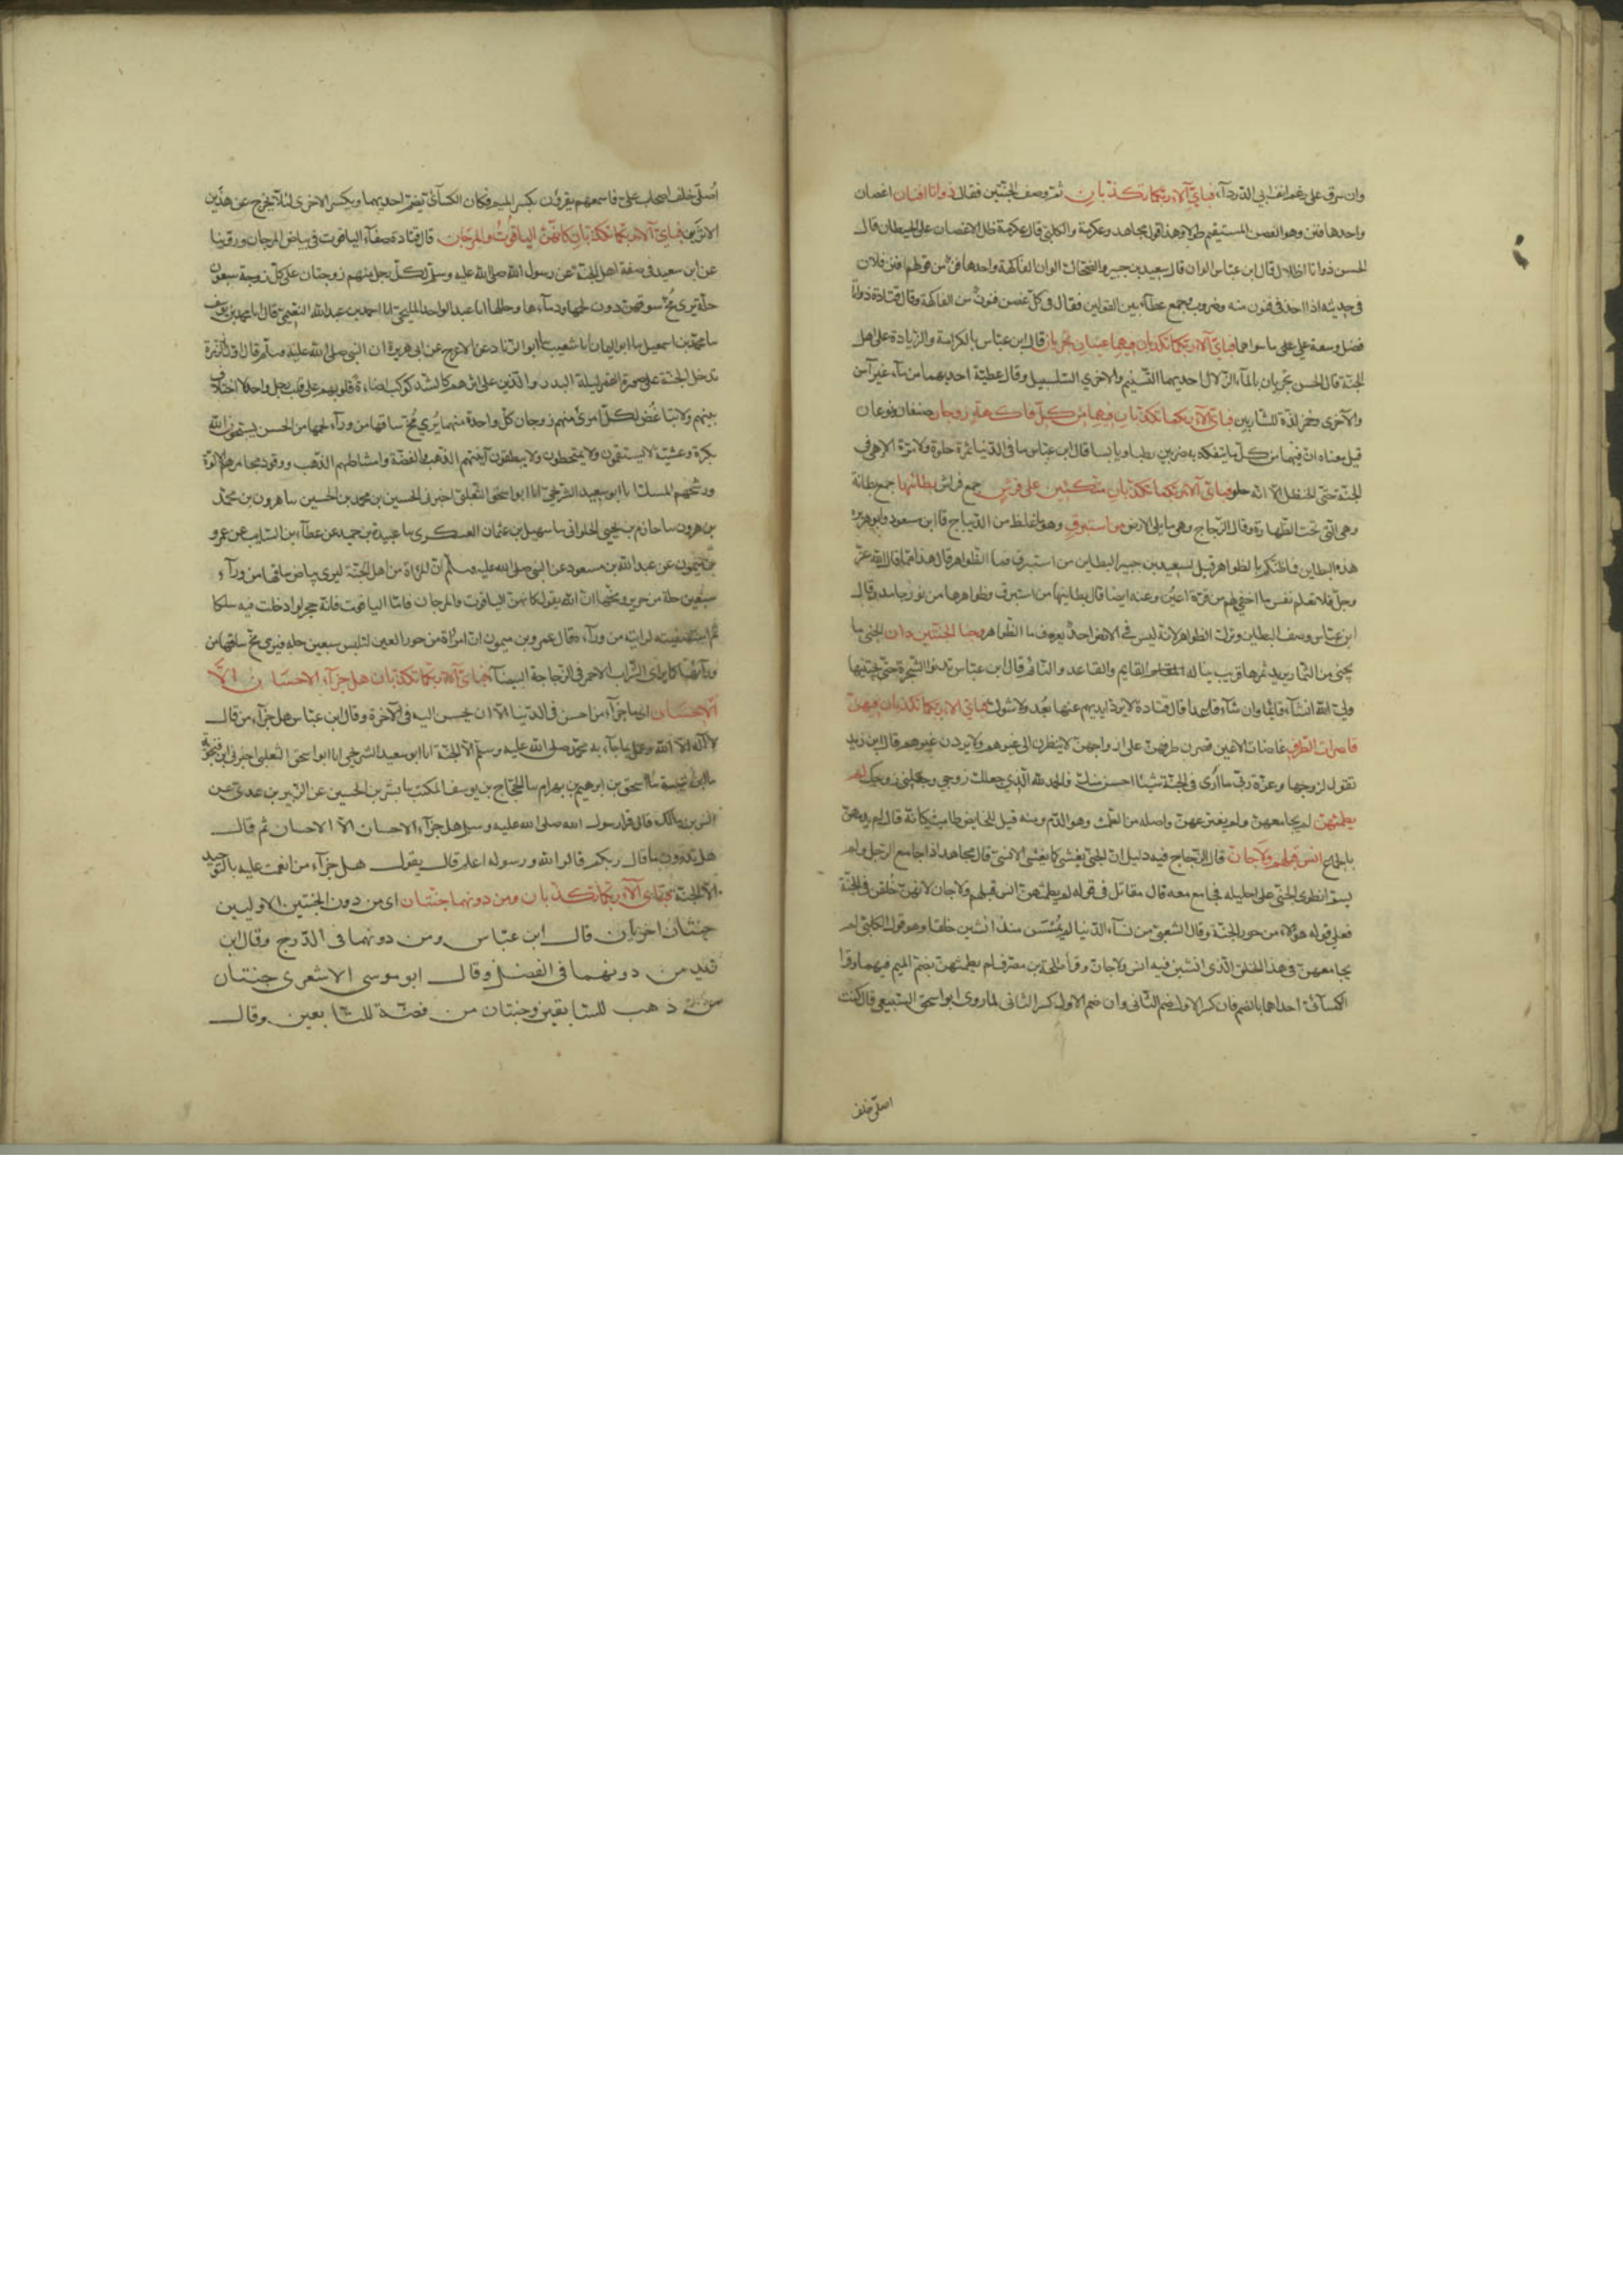 وان سرق على رغم انف ابي الدرداء فباي آلاء ربكما تكذبان ثم وصف الجنتين فقال ذواتا افنان اغصان
واحدها فنن وهو الغصن المستقيم طولا وهذا قول مجاهد وعكرمة والكلبي قال عكرمة ظل الاغصان على الحيطان قال
الحسن ذواتا اظلال قال ابن عباس الوان قال سعيد بن جبير والضحاك الوان الفاكهة واحدها فن من قولهم افنن فلان
في حديثه اذا اخذ في فنون منه وضروب وجمع عطاء بين القولين فقال في كل غصن فنون من الفاكهة وقال قتادة ذواتا
فضل وسعة على ما سواهما فباي آلاء ربكما تكذبان فيهما عينان تجريان قال ابن عباس بالكرامة والزيادة على اهل
الجنة قال الحسن تجريان بالماء الزلال احديهما التسنيم والاخرى السلسبيل وقال عطية احديهما من ماء غير آسن
والاخرى من خمر لذة للشاربين فباي آلاء ربكما تكذبان فيهما من كل فاكهة زوجان صنفان ونوعان
قيل معناه ان فيهما من كل ما يتفكه به ضربين رطبا ويابسا قال ابن عباس ما في الدنيا ثمرة حلوة ولا مرة الا وهي في
الجنة حتى الحنظل الا انه حلو فباي آلاء ربكما تكذبان متكئين على فرش جمع فراش بطائنها جمع بطانة
وهي التي تحت الظهارة وقال الزجاج وهي ما يلي الارض من استبرق وهو ما غلظ من الديباج قال ابن مسعود وابو هريرة
هذه البطاين فما ظنكم بالظواهر قيل لسعيد بن جبير البطاين من استبرق فما الظواهر قال هذا مما قال الله عز
وجل فلا تعلم نفس ما اخفي لهم من قرة اعين وعنه ايضا قال بطاينها من استبرق وظواهرها من نور جامد وقال
ابن عباس وصف البطاين وترك الظواهر لانه ليس في الارض احد يعرف ما الظواهر وجنا الجنتين دان الجنى ما
يجتنى من الثمار يريد ثمرها قريب يناله القايم والقاعد والنائم قال ابن عباس تدنوا الشجرة حتى يجتنيها
ولي الله ان شاء قائما وان شاء قاعدا قال قتادة لا يرد ايديهم عنها بعد ولا شوك فباي آلاء ربكما تكذبان فيهن
قاصرات الطرف غاضات الاعين قصرن طرفهن على ازواجهن لا ينظرن الى غيرهم ولا يردن غيرهم قال ابن زيد
تقول لزوجها وعزة ربي ما ارى في الجنة شيئا احسن منك فالحمد لله الذي جعلك زوجي وجعلني زوجك لم
يطمثهن لم يجامعهن ولم يفترعهن واصله من الطمث وهو الدم ومنه قيل للحايض طامث كانه قال لم يدمهن
بالجماع انس قبلهم ولا جان قال الزجاج فيه دليل ان الجني يغشى كما يغشى الانسي قال مجاهد اذا جامع الرجل ولم
يسم انطوى الجني على احليله فجامع معه قال مقاتل في قوله لم يطمثهن انس قبلهم ولا جان لانهن خلقن في الجنة
فعلى قوله هؤلاء من حور الجنة وقال الشعبي من نساء الدنيا لم يمسسن منذ انشين خلقا وهو قول الكلبي لم
يجامعهن في هذا الخلق الذي انشين فيه انس ولا جان وقرأ طلحة بن مصرف لم يطمثهن بضم الميم فيهما وقرا
الكسائي احداهما بالضم فان كسر الاول ضم الثاني وان ضم الاول كسر الثاني لما روى ابو اسحق السبيعي قال كنت
اصلي خلف
اصلي خلف اصحاب علي فاسمعهم يقرؤن بكسر الميم فكان الكسائي يضم احديهما ويكسر الاخرى لئلا يخرج عن هذين
الاثرين فباي آلاء ربكما تكذبان كانهن الياقوت والمرجان قال قتادة صفاء الياقوت في بياض المرجان وروينا
عن ابي سعيد في صفة اهل الجنة عن رسول الله صلى الله عليه وسلم لكل رجل منهم زوجتان على كل زوجة سبعون
حلة يرى مخ سوقهن دون لحمها ودماءها وجلدها انا عبد الواحد المليحي انا احمد بن عبد الله النعيمي قال انا محمد بن يوسف
سا محمد بن اسمعيل سا ابو اليمان انا شعيب سا ابو الزناد عن الاعرج عن ابي هريرة ان النبي صلى الله عليه وسلم قال اول زمرة
تدخل الجنة على صورة القمر ليلة البدر والذين على اثرهم كاشد كوكب اضاءة قلوبهم على قلب رجل واحد لا اختلاف
بينهم ولا تباغض لكل امرئ منهم زوجان كل واحدة منهما يرى مخ ساقها من وراء لحمها من الحسن يسبحون الله
بكرة وعشية لا يسقمون ولا يمتخطون ولا يبصقون آنيتهم الذهب والفضة وامشاطهم الذهب ووقود مجامرهم الالوة
ورشحهم المسك انا ابو سعيد الشريحي انا ابو اسحق الثعلبي اخبرني الحسين بن محمد بن الحسين سا هرون بن محمد
بن هرون سا حازم بن يحيى الحلواني سا سهيل بن عثمان العسكري سا عبيدة بن حميد عن عطاء بن السايب عن عمرو
بن ميمون عن عبد الله بن مسعود عن النبي صلى الله عليه وسلم ان المراة من اهل الجنة ليرى بياض ساقها من وراء
سبعين حلة من حرير ومخها ان الله يقول كانهن الياقوت والمرجان فاما الياقوت فانه حجر لو ادخلت فيه سلكا
ثم استصفيته لرايته من وراءه وقال عمرو بن ميمون ان المراة من حور العين لتلبس سبعين حلة فيرى مخ ساقها من
ورائها كما يرى الشراب الاحمر في الزجاجة البيضاء فباي آلاء ربكما تكذبان هل جزاء الاحسان الا
الاحسان اي ما جزاء من احسن في الدنيا الا ان يحسن اليه في الآخرة وقال ابن عباس هل جزاء من قال
لا اله الا الله وعمل بما جاء به محمد صلى الله عليه وسلم الا الجنة انا ابو سعيد الشريحي انا ابو اسحق الثعلبي اخبرني ابن فنجويه
سا ابن شيبة سا اسحق بن ابرهيم بن بهرام سا الحجاج بن يوسف المكتب سا بشر بن الحسين عن الزبير بن عدي عن
انس بن مالك قال قرا رسول الله صلى الله عليه وسلم هل جزاء الاحسان الا الاحسان ثم قال
هل تدرون ما قال ربكم قالوا الله ورسوله اعلم قال يقول هل جزاء من انعمت عليه بالتوحيد
الا الجنة فباي آلاء ربكما تكذبان ومن دونهما جنتان اي من دون الجنتين الاوليين
جنتان اخريان قال ابن عباس ومن دونهما في الدرج وقال ابن
زيد من دونهما في الفضل وقال ابو موسى الاشعري جنتان
من ذهب للسابقين وجنتان من فضة للتابعين وقال